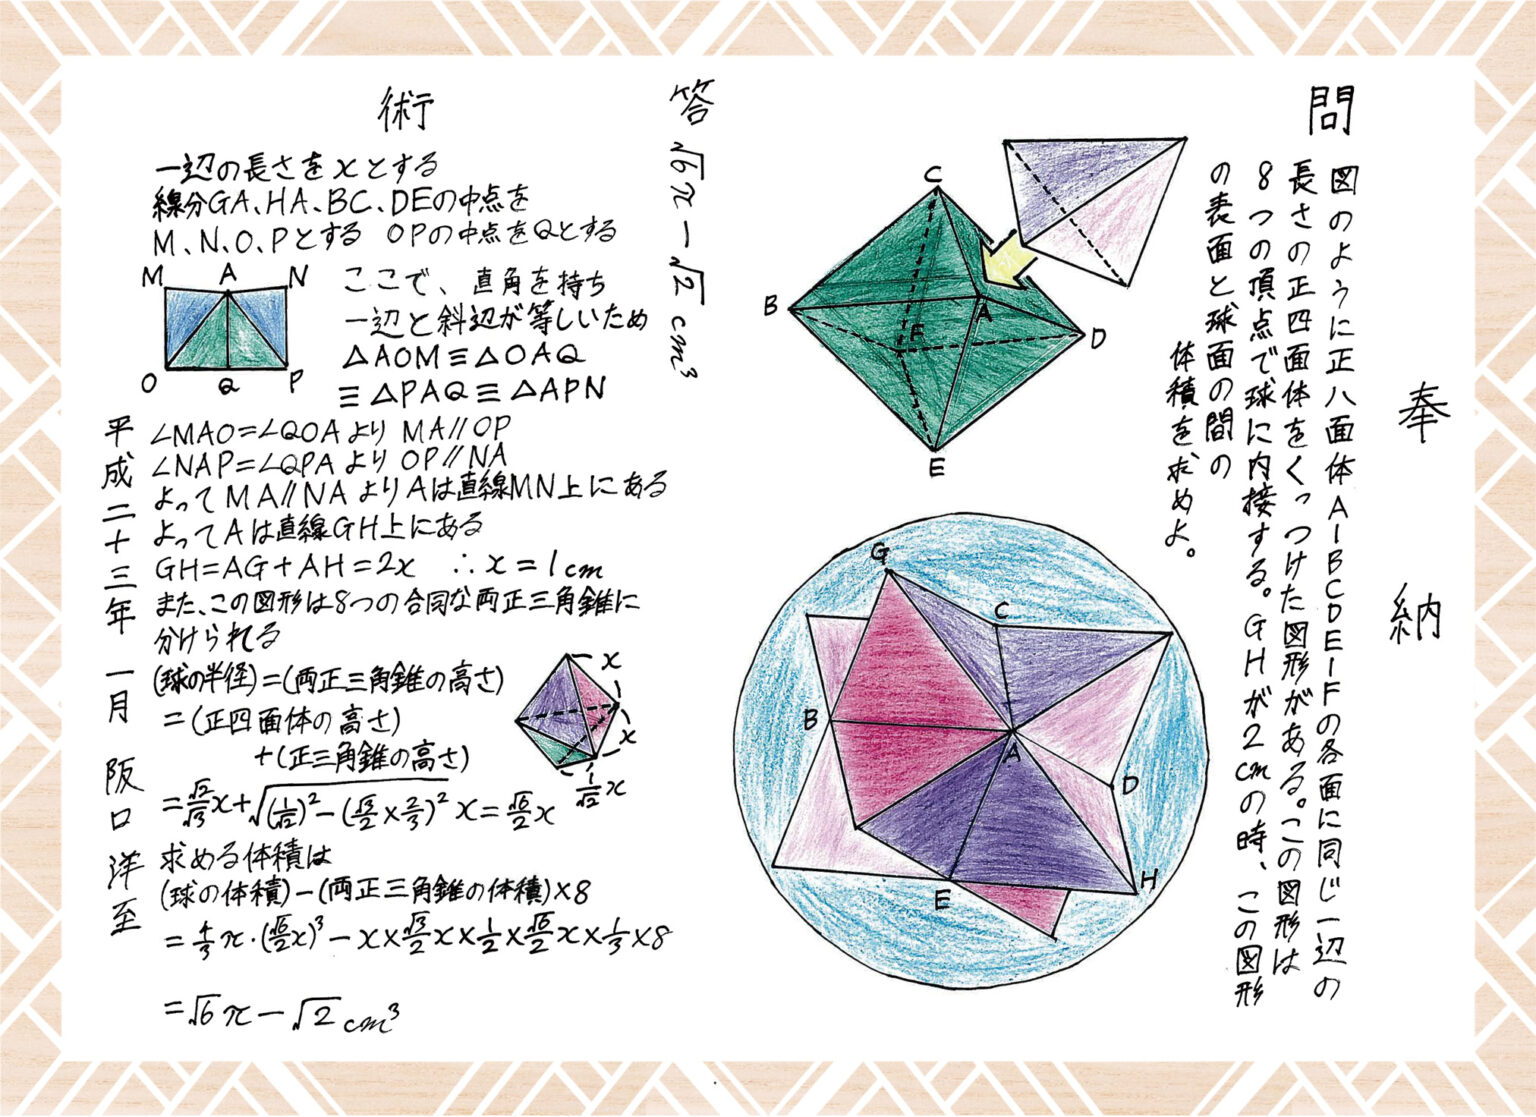 奉納
問
図のように正八面体A-BCDE-Fの各面に同じ一辺の
長さの正四面体をくっつけた図形がある。この図形は
8つの頂点で球に内接する。GHが2cmの時、この図形
の表面と球面の間の
体積を求めよ。
C
B
A
F
D
E
G
C
B
A
D
E
H
答 √6π−√2 cm³
術
一辺の長さをxとする
線分GA、HA、BC、DEの中点を
M、N、O、Pとする OPの中点をQとする
M A N
O Q P
ここで、直角を持ち
一辺と斜辺が等しいため
△AOM≡△OAQ
≡△PAQ≡△APN
∠MAO=∠QOAより MA//OP
∠NAP=∠QPAより OP//NA
よってMA//NAよりAは直線MN上にある
よってAは直線GH上にある
GH=AG+AH=2x ∴x=1cm
また、この図形は8つの合同な両正三角錐に
分けられる
(球の半径)=(両正三角錐の高さ)
=(正四面体の高さ)
+(正三角錐の高さ)
x
x
1/√2 x
=√2/√3 x+√((1/√2)²−(√3/2×2/3)²) x=√6/2 x
求める体積は
(球の体積)−(両正三角錐の体積)×8
=4/3 π・(√6/2 x)³−x×√3/2 x×1/2×√6/2 x×1/3×8
=√6π−√2 cm³
平成二十三年一月 阪口洋至